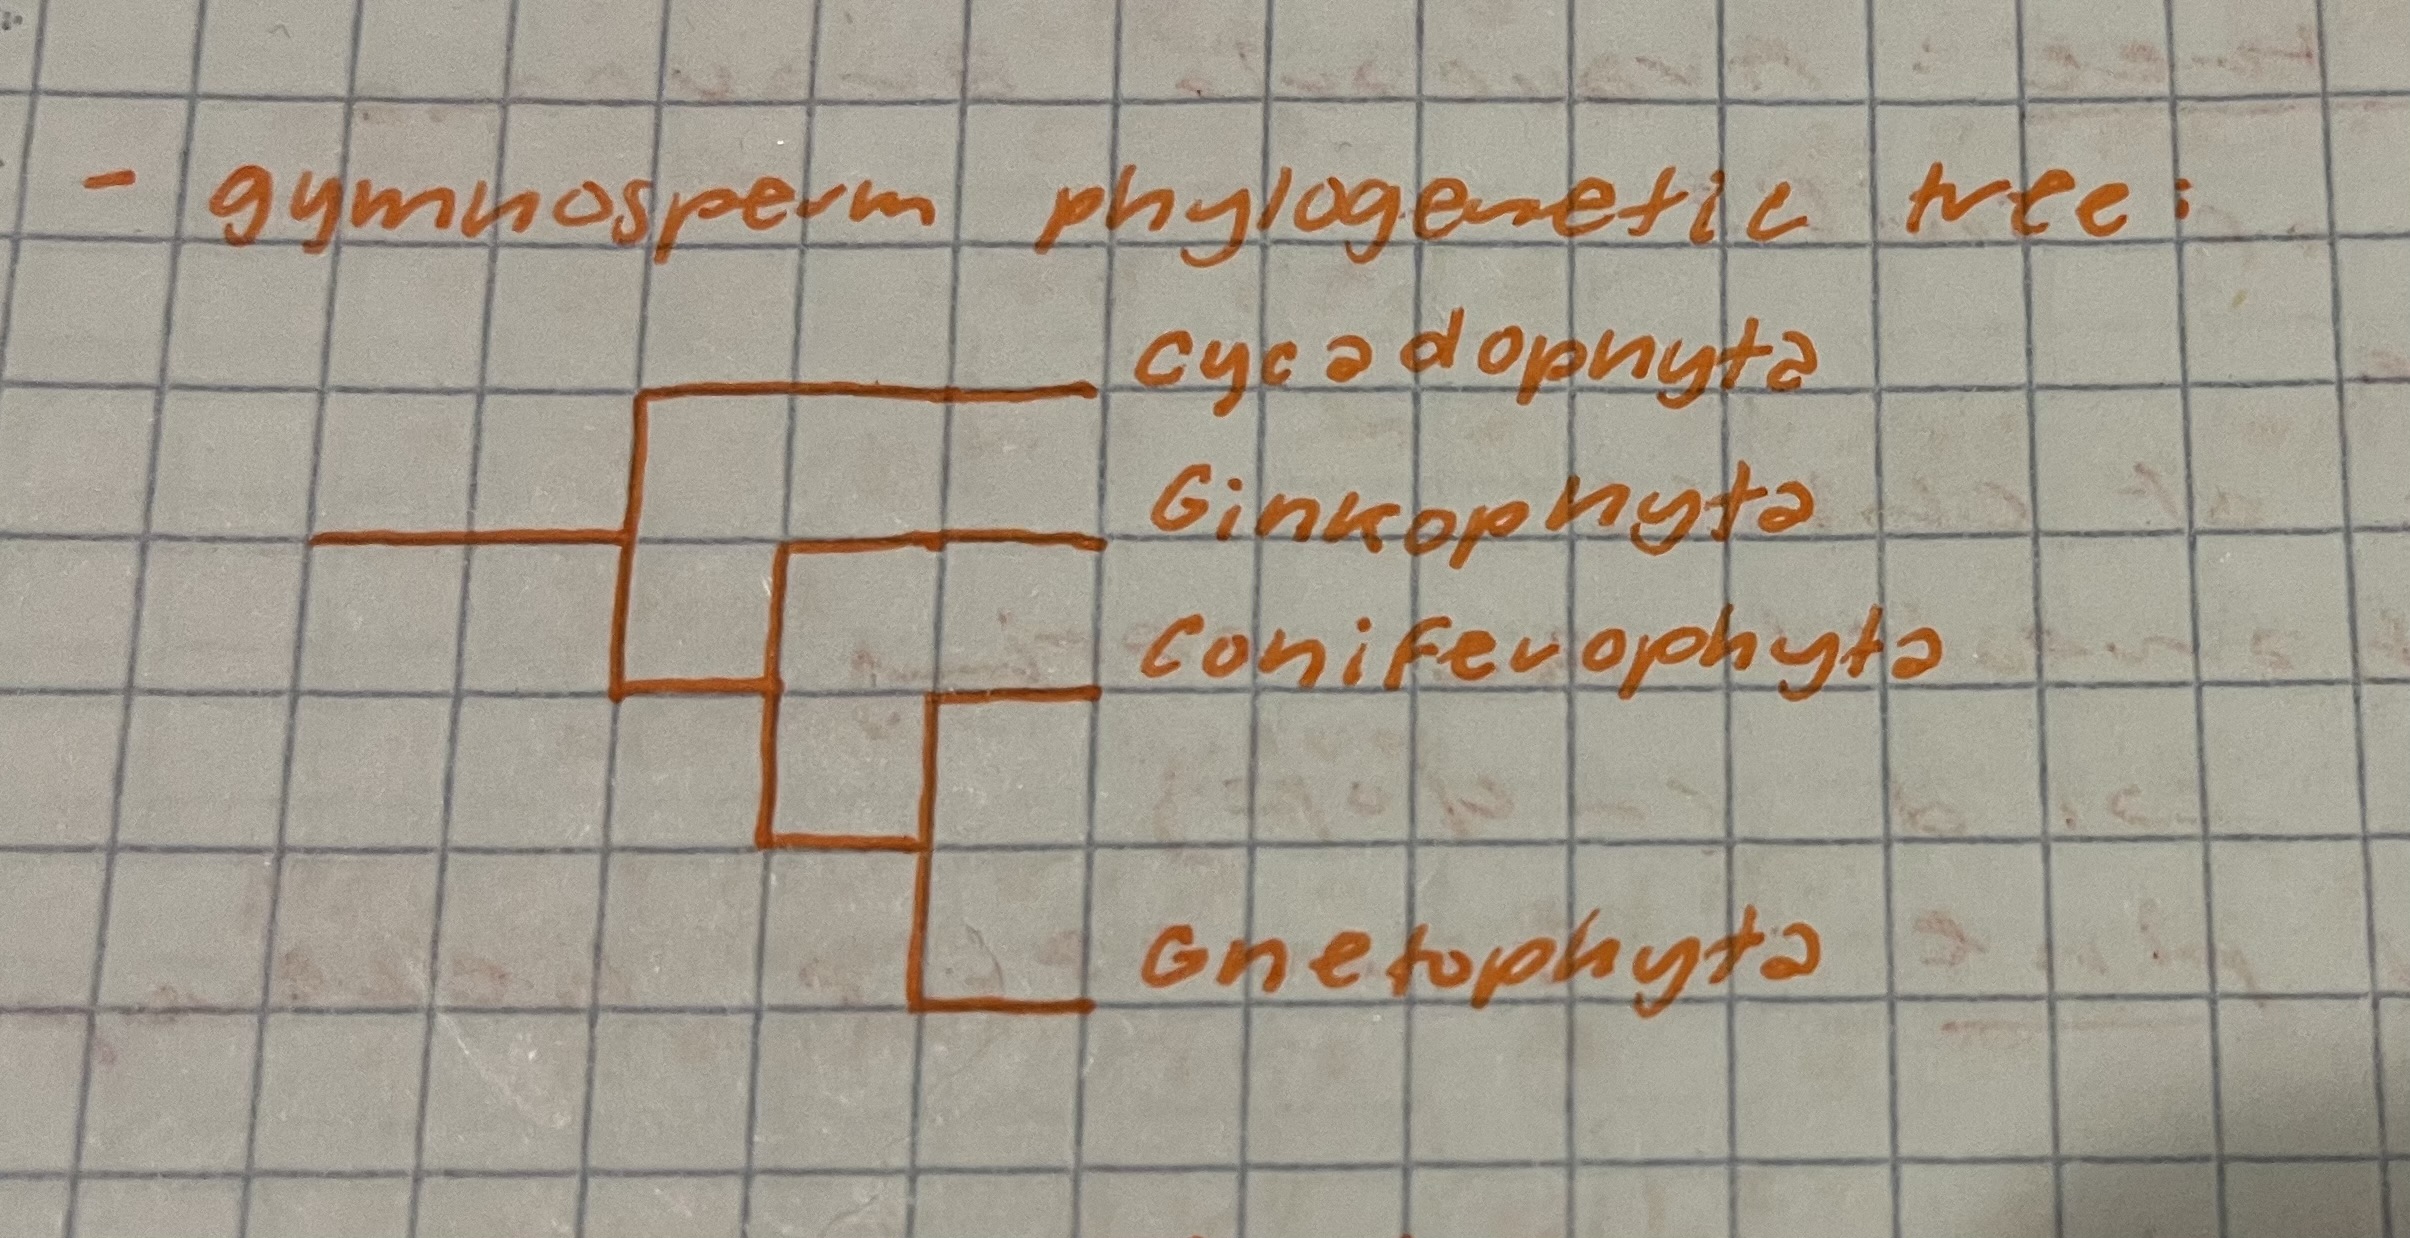 - gymnosperm phylogenetic tree:
Cycadophyta
Ginkophyta
Coniferophyta
Gnetophyta